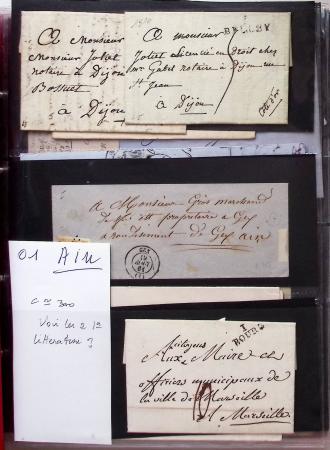 A Monsieur
Monsieur Joliet
notaire à Dijon
Bossuet
à Dijon
1810
A monsieur
BELLEY
Joliet Licencié en Droit chez
mr. notaire à Dijon rue
St Jean
à Dijon
Côte d'or
A Monsieur Gros marchand
propriétaire a Gex
arondisement de Gex ain
GEX
01 Ain
Voir les 2 1e
litterature ?
1
BOURG
Citoyens
Aux Maire et
officiers municipaux de
la ville de Marseille
à Marseille